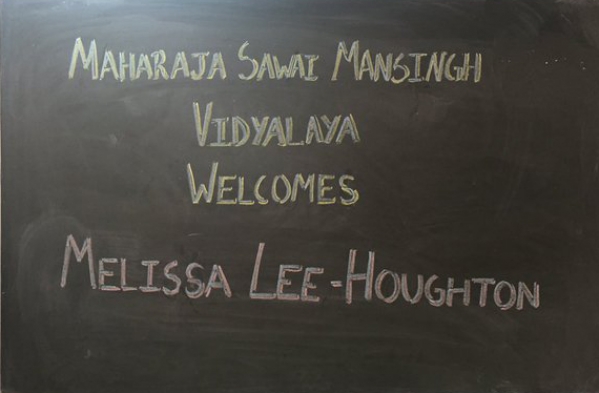 MAHARAJA SAWAI MANSINGH
VIDYALAYA
WELCOMES
MELISSA LEE-HOUGHTON